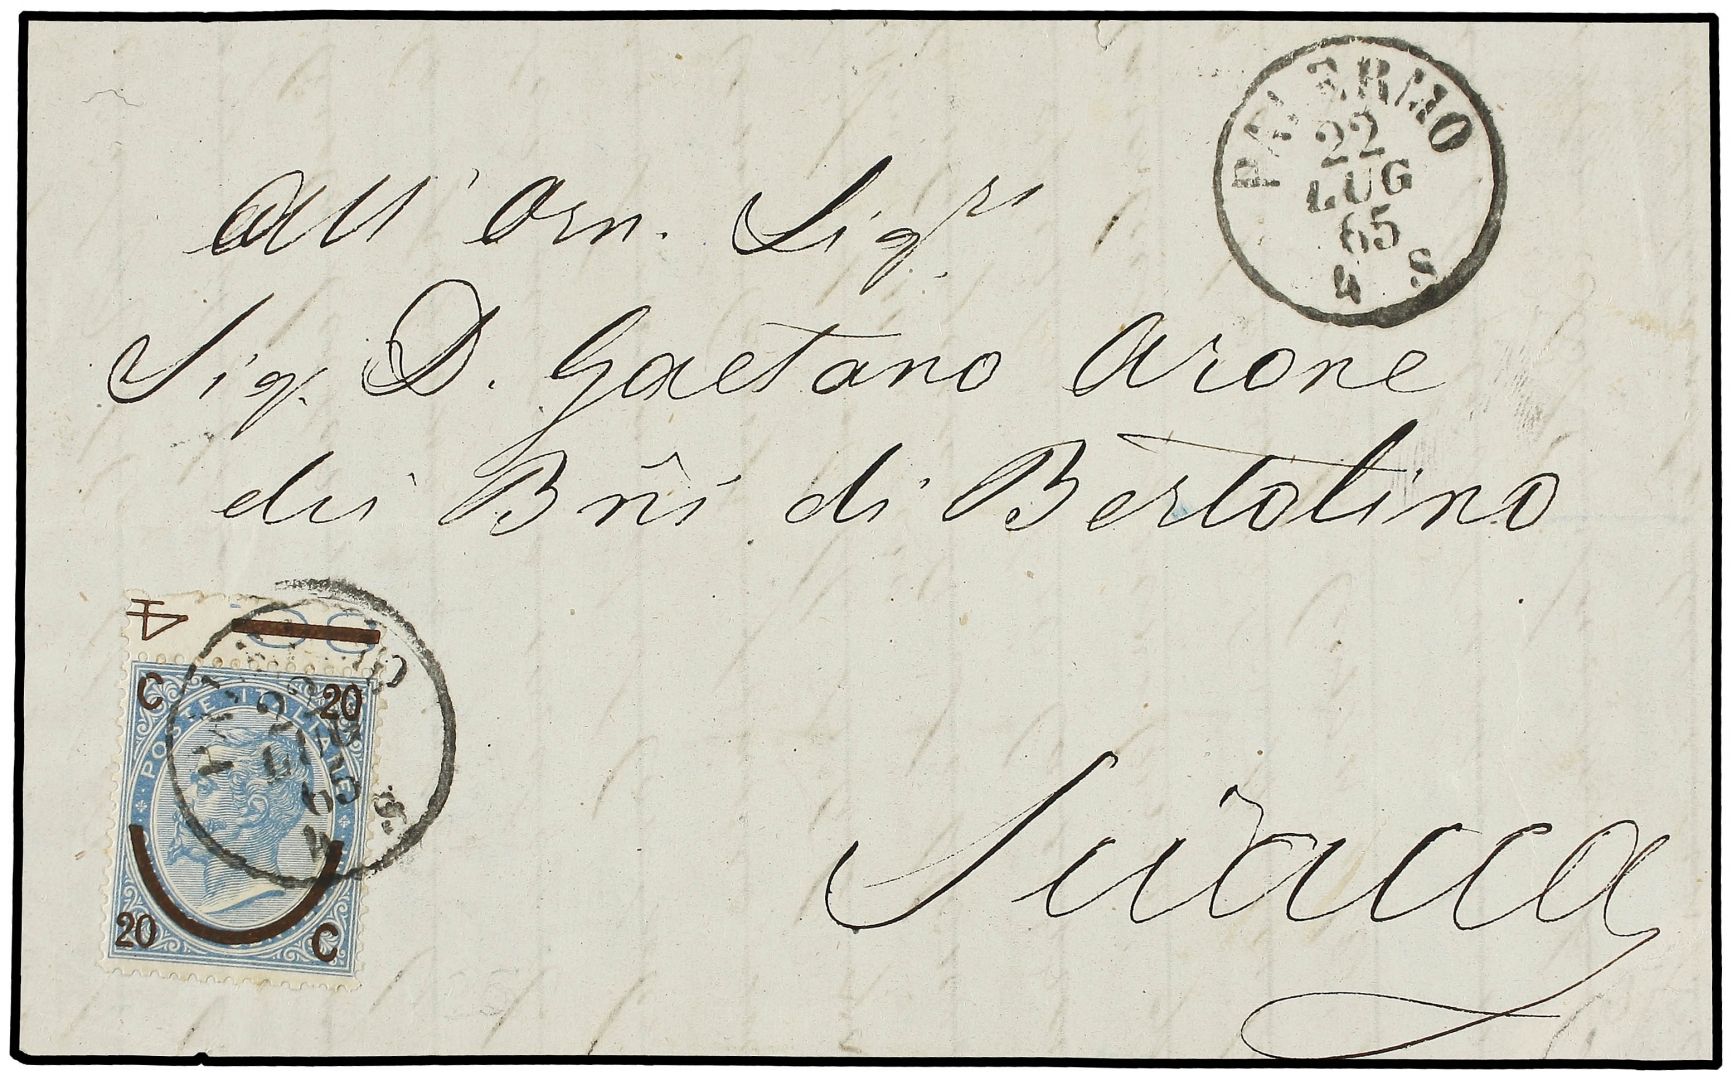 PALERMO
22
LUG
65
4 S
All' Orn. Sigr
Sig. D. Gaetano Arone
dei Bñi di Bertolino
Sciacca
4
PALERMO
22
LUG
65
4 S.
C 20
POSTE ITALIANE
20 C